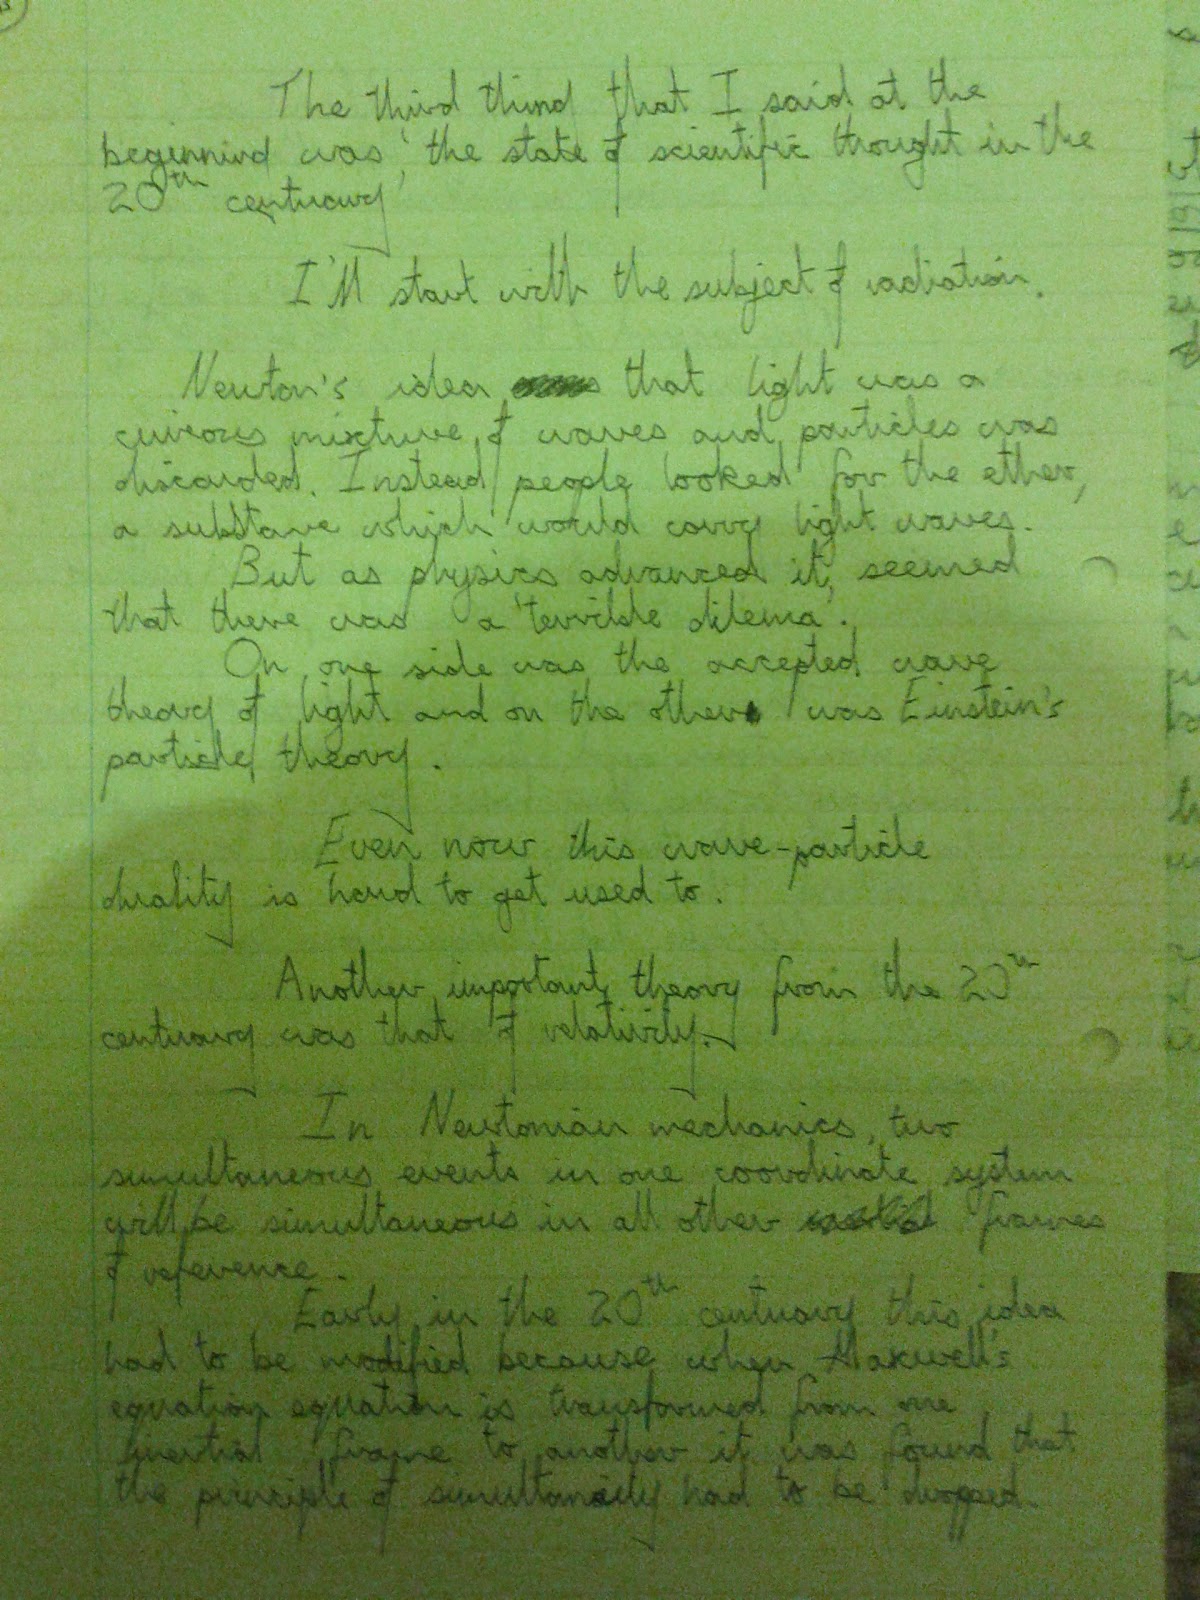 The third thind that I said at the
beginnind was 'the state of scientific thought in the
20th centuary'
I'll start with the subject of radiation.
Newton's idea that light was a
curious mixture of waves and particles was
discarded. Instead people looked for the ether,
a substane which would carry light waves.
But as physics advanced it, seemed
that there was a 'terrible dilema'.
On one side was the accepted wave
theory of light and on the other was Einstein's
particle theory.
Even now this wave-particle
duality is hard to get used to.
Another important theory from the 20th
centuary was that of relativity.
In Newtonian mechanics, two
simultaneous events in one coordinate system
will be simultaneous in all other frames
of reference.
Early in the 20th centuary this idea
had to be modified because when Maxwell's
equation equation is transformed from one
inertial frame to another it was found that
the principle of simultaneity had to be dropped.